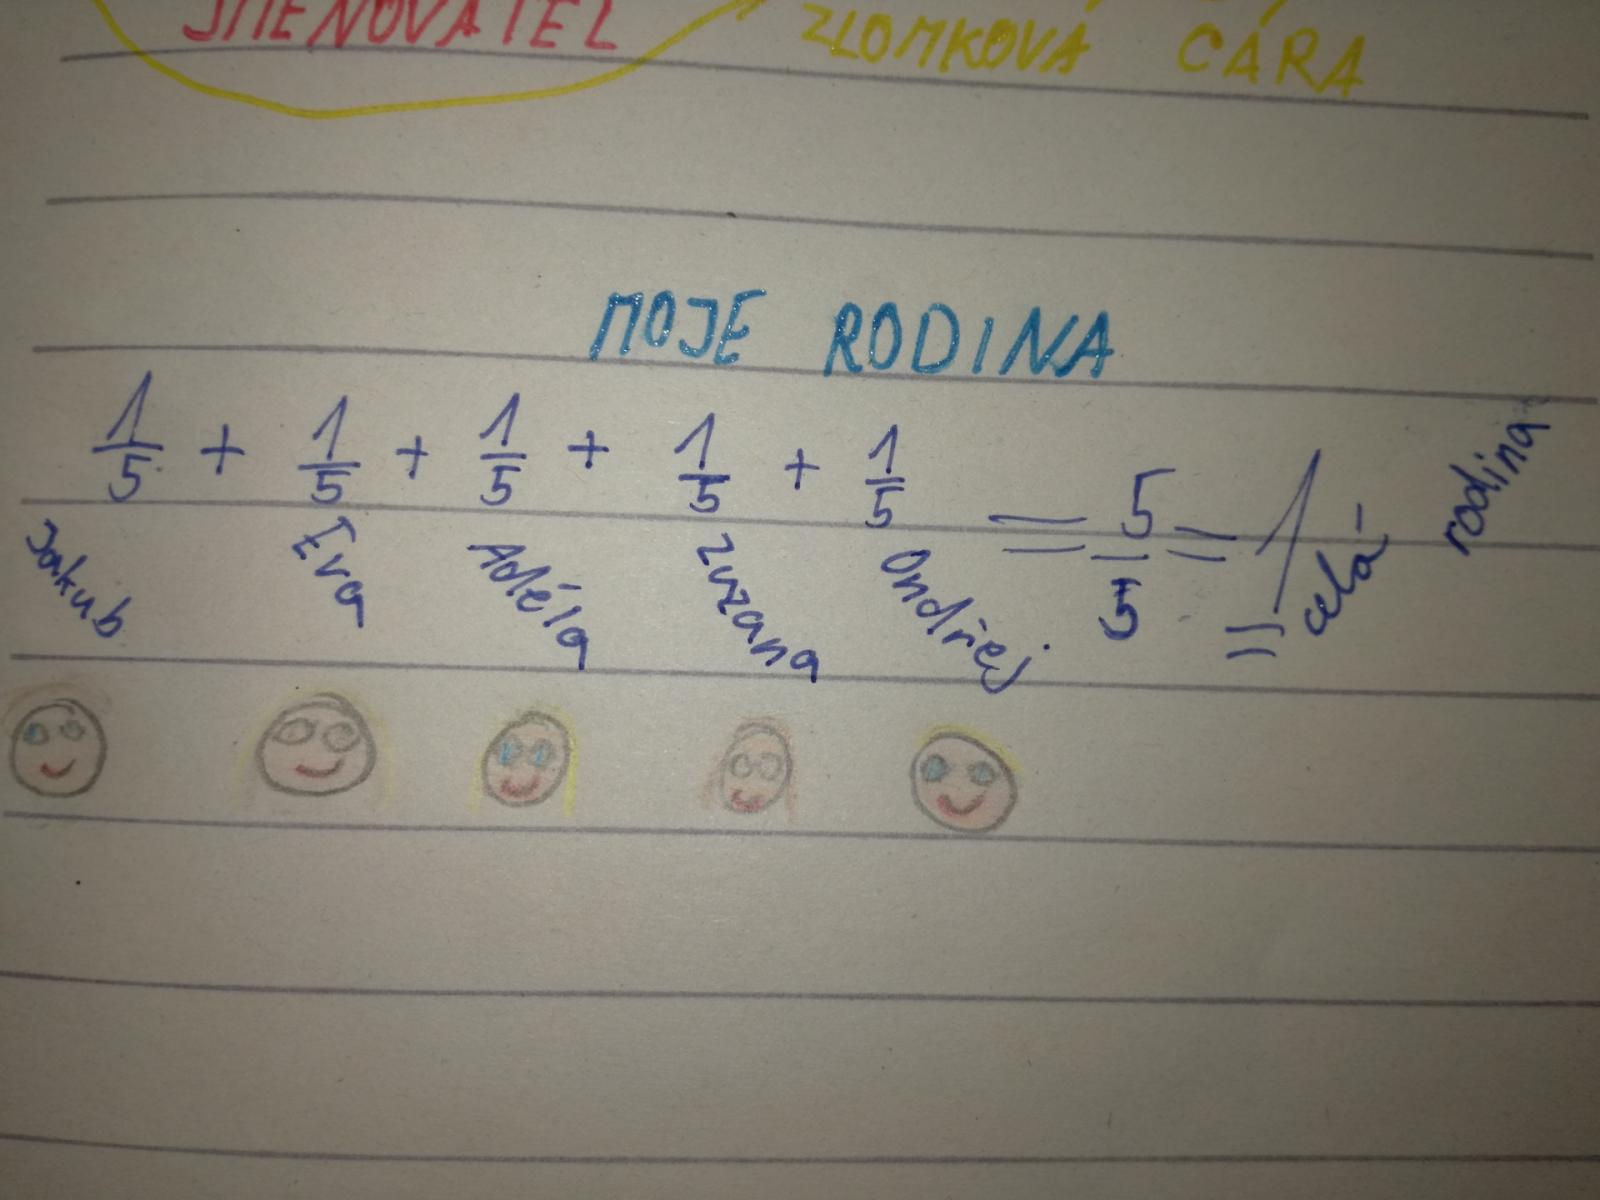 JMENOVATEL ZLOMKOVÁ ČÁRA
MOJE RODINA
1/5 + 1/5 + 1/5 + 1/5 + 1/5 = 5/5 = 1 = celá rodina
Jakub Eva Adéla Zuzana Ondřej